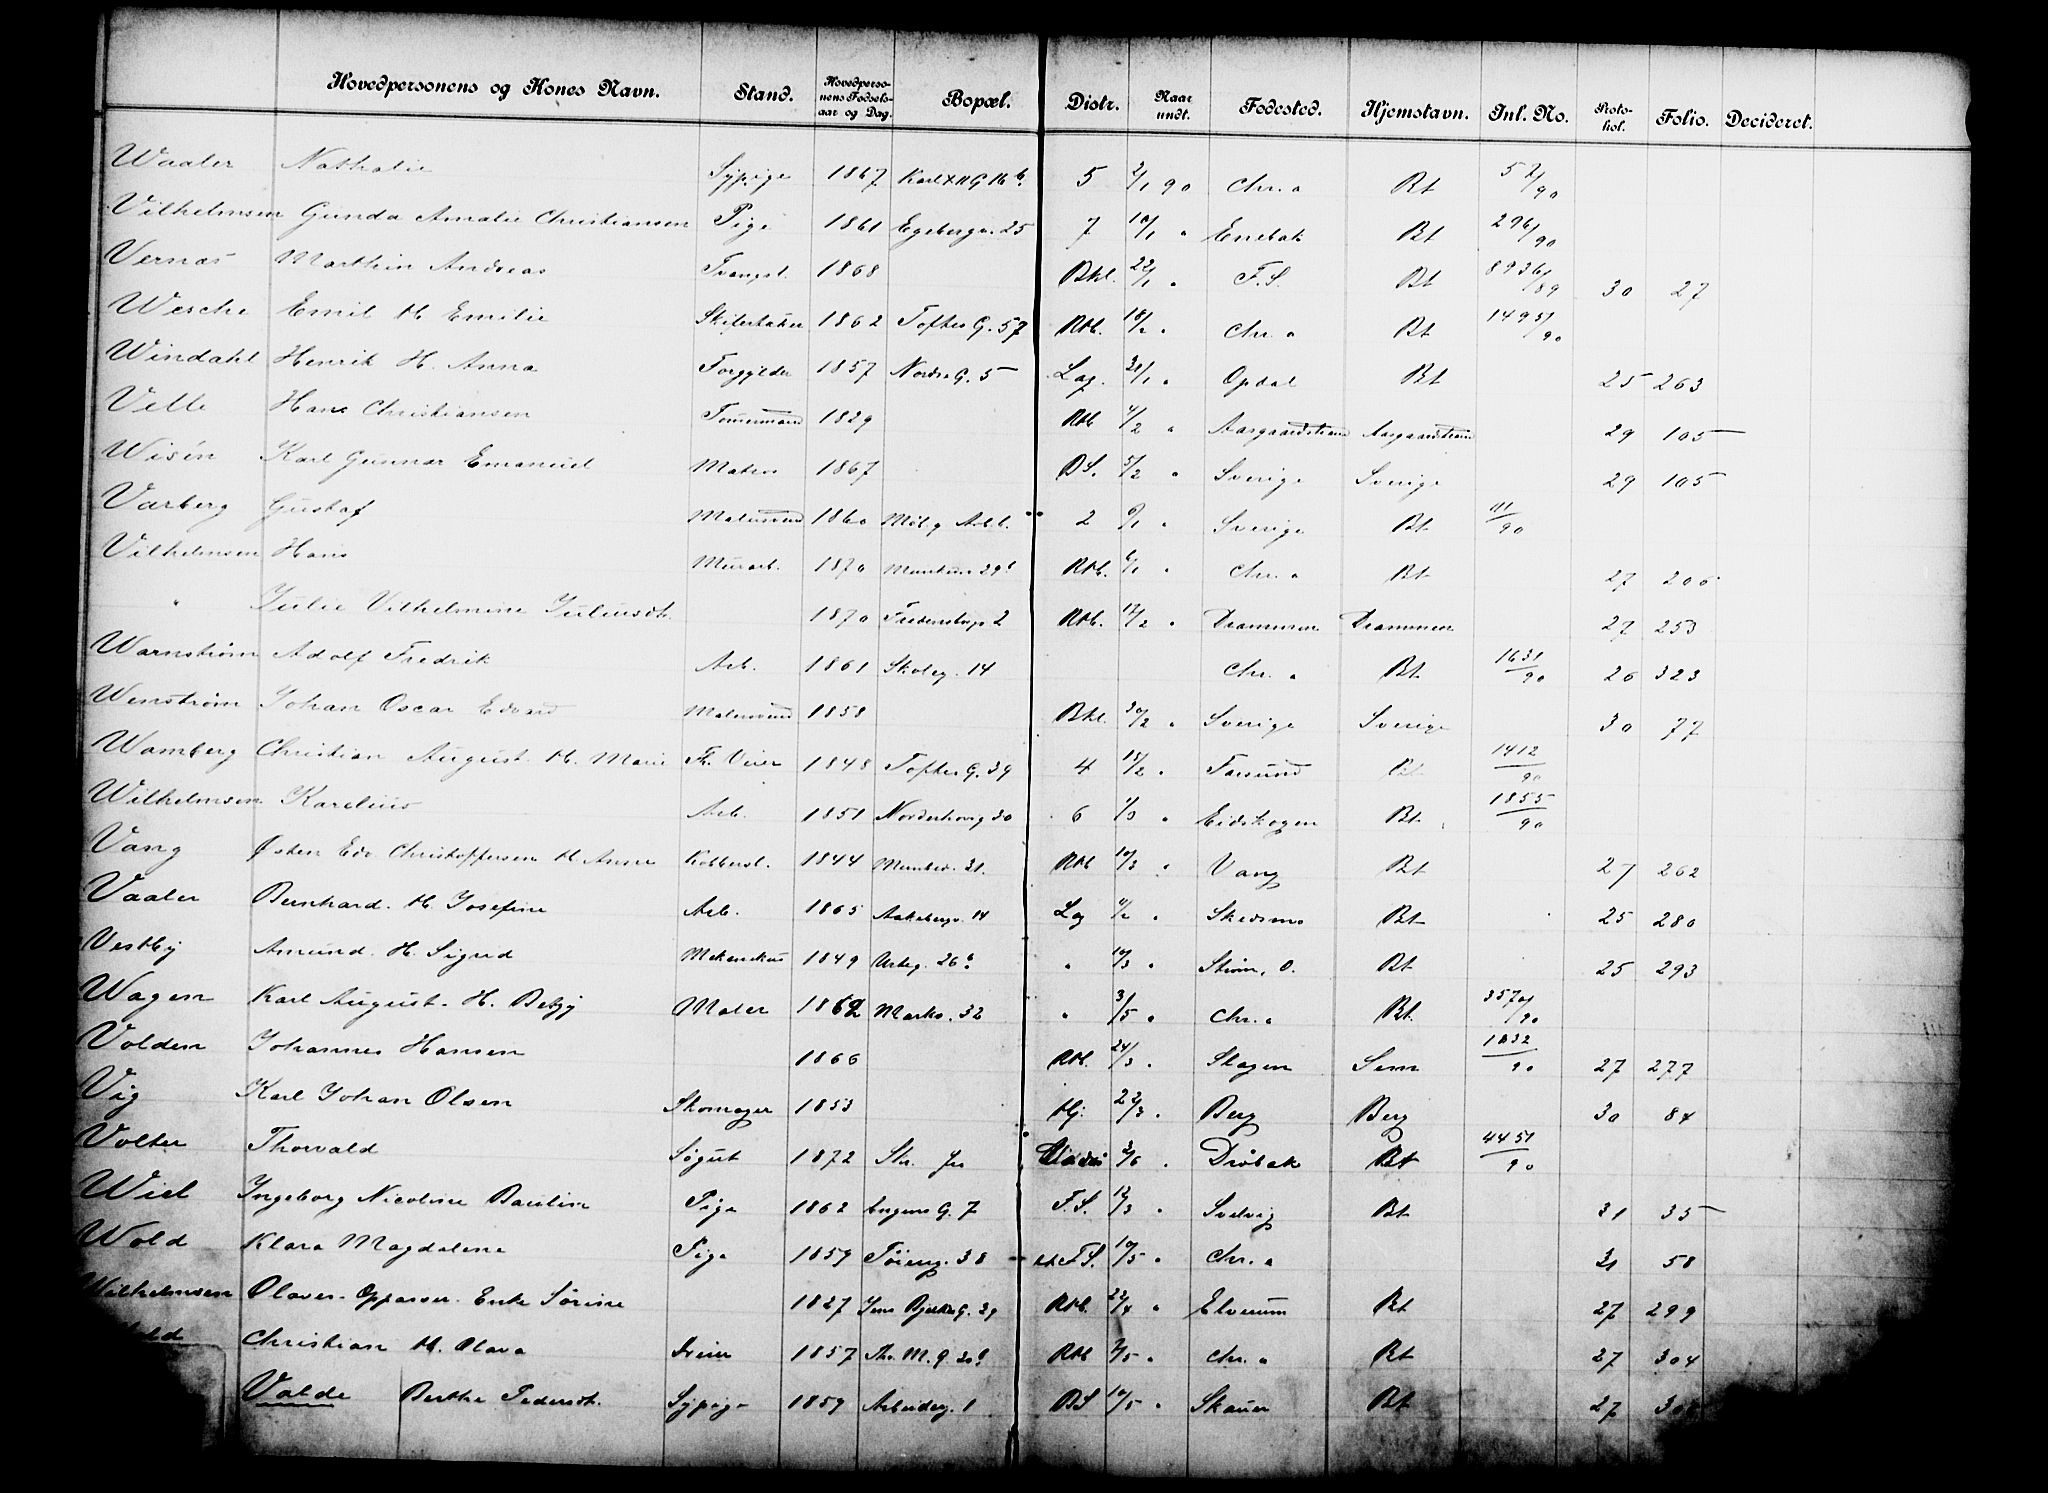 Hovedpersonens og Kones Navn. Stand. Hovedpersonens Fødselsaar og Dag. Bopæl. Distr. Naar undt. Fødested. Hjemstavn. Inl. No. Protokol. Folio. Decideret.
Waaler Nathalie Sypige 1867 Karl XII G 16 b. 5 2/1 90 Chr.a Bt 52/90
Vilhelmsen Gunda Amalie Christiansen Pige 1861 Egebergv. 25 7 10/1 " Enebak Bt 296/90
Vernas Marthin Andreas Tvangsl. 1868 Bkl. 22/1 " F.S. Bt 8936/89 30 27
Wesche Emil H. Emilie 1862 Toftes G. 57 Rtb. 18/2 " Chr.a Bt 1495/90
Windahl Henrik H. Anna Forgylder 1857 Nordre G. 5 Lag. 31/1 " Opdal Bt 25 263
Velle Hans Christiansen Tømermand 1829 Rtb 4/2 " Aasgaardstrand Aasgaardstrand 29 105
Wisén Karl Gunnar Emanuel 1867 BS. 5/2 " Sverige Sverige 29 105
Varberg Gustaf 1860 2 " Sverige Bt 111/90
Vilhelmsen Hans Murarb. 1870 Rtb. 6/1 " Chr.a Bt 27 206
" Julie Vilhelmine Juliusdt. 1870 2 Rtb. 17/2 " Drammen Drammen 27 253
Warnstrøm Adolf Fredrik Arb. 1861 Skoleg. 14 Chr.a Bt 1631/90 26 323
Wenstrøm Johan Oscar Edvard 1858 Bkl. 20/2 " Sverige Sverige 30 77
Wamberg Christian August H. Marie Th. Veier 1848 Toftes G. 39 4 15/2 " Farsund Bt 1412/90
Wilhelmsen Karelius Arb. 1851 Norderhovg 30 6 1/3 " Eidskogen Bt 1855/90
Vang Østen Edv Christoffersen H. Anne Kobbersl. 1844 31. Rtb 10/3 " Vang Bt 27 262
Vaaler Bernhard. H. Josefine Arb. 1865 Aakebergv. 14 Lag " Skedsmo Bt 25 280
Vestby Amund. H. Sigrid Mekanikus 1849 Urteg. 26 b. " 10/3 " Strøm, O. Bt 25 293
Wagen Karl August. H. Betzy Maler 1862 Markv. 32 " 3/5 " Chr.a Bt. 3570/90
Volden Johannes Hansen 1866 Rtb. 24/3 " Skogen Sem 1832/90 27 277
Vig Karl Johan Olsen Skomager 1853 Hj. 22/3 " Berg Berg 30 84
Volter Thorvald Søgut 1872 3/6 " Drøbak Bt 4451/90
Wiel Ingeborg Nicoline Pauline Pige 1862 Engens G. 7 F.S. 12/3 " Svelvig Bt 31 35
Wold Klara Magdalene Pige 1859 Tøieng. 38 F.S. 10/5 " Chr.a 31 58
Wilhelmsen Olaves. Oppasser. Enke Sørine 1827 Jens Bjelkes G. 29 Rtb. 22/4 " Elverum Bt 27 299
Christian H. Olava Dreier 1857 Rtb 2/5 " Chr.a Bt 27 304
Valde Berthe Pedersdt. Sypige 1859 Arbeiderg. 1 BS 10/5 " Skauen Bt 27